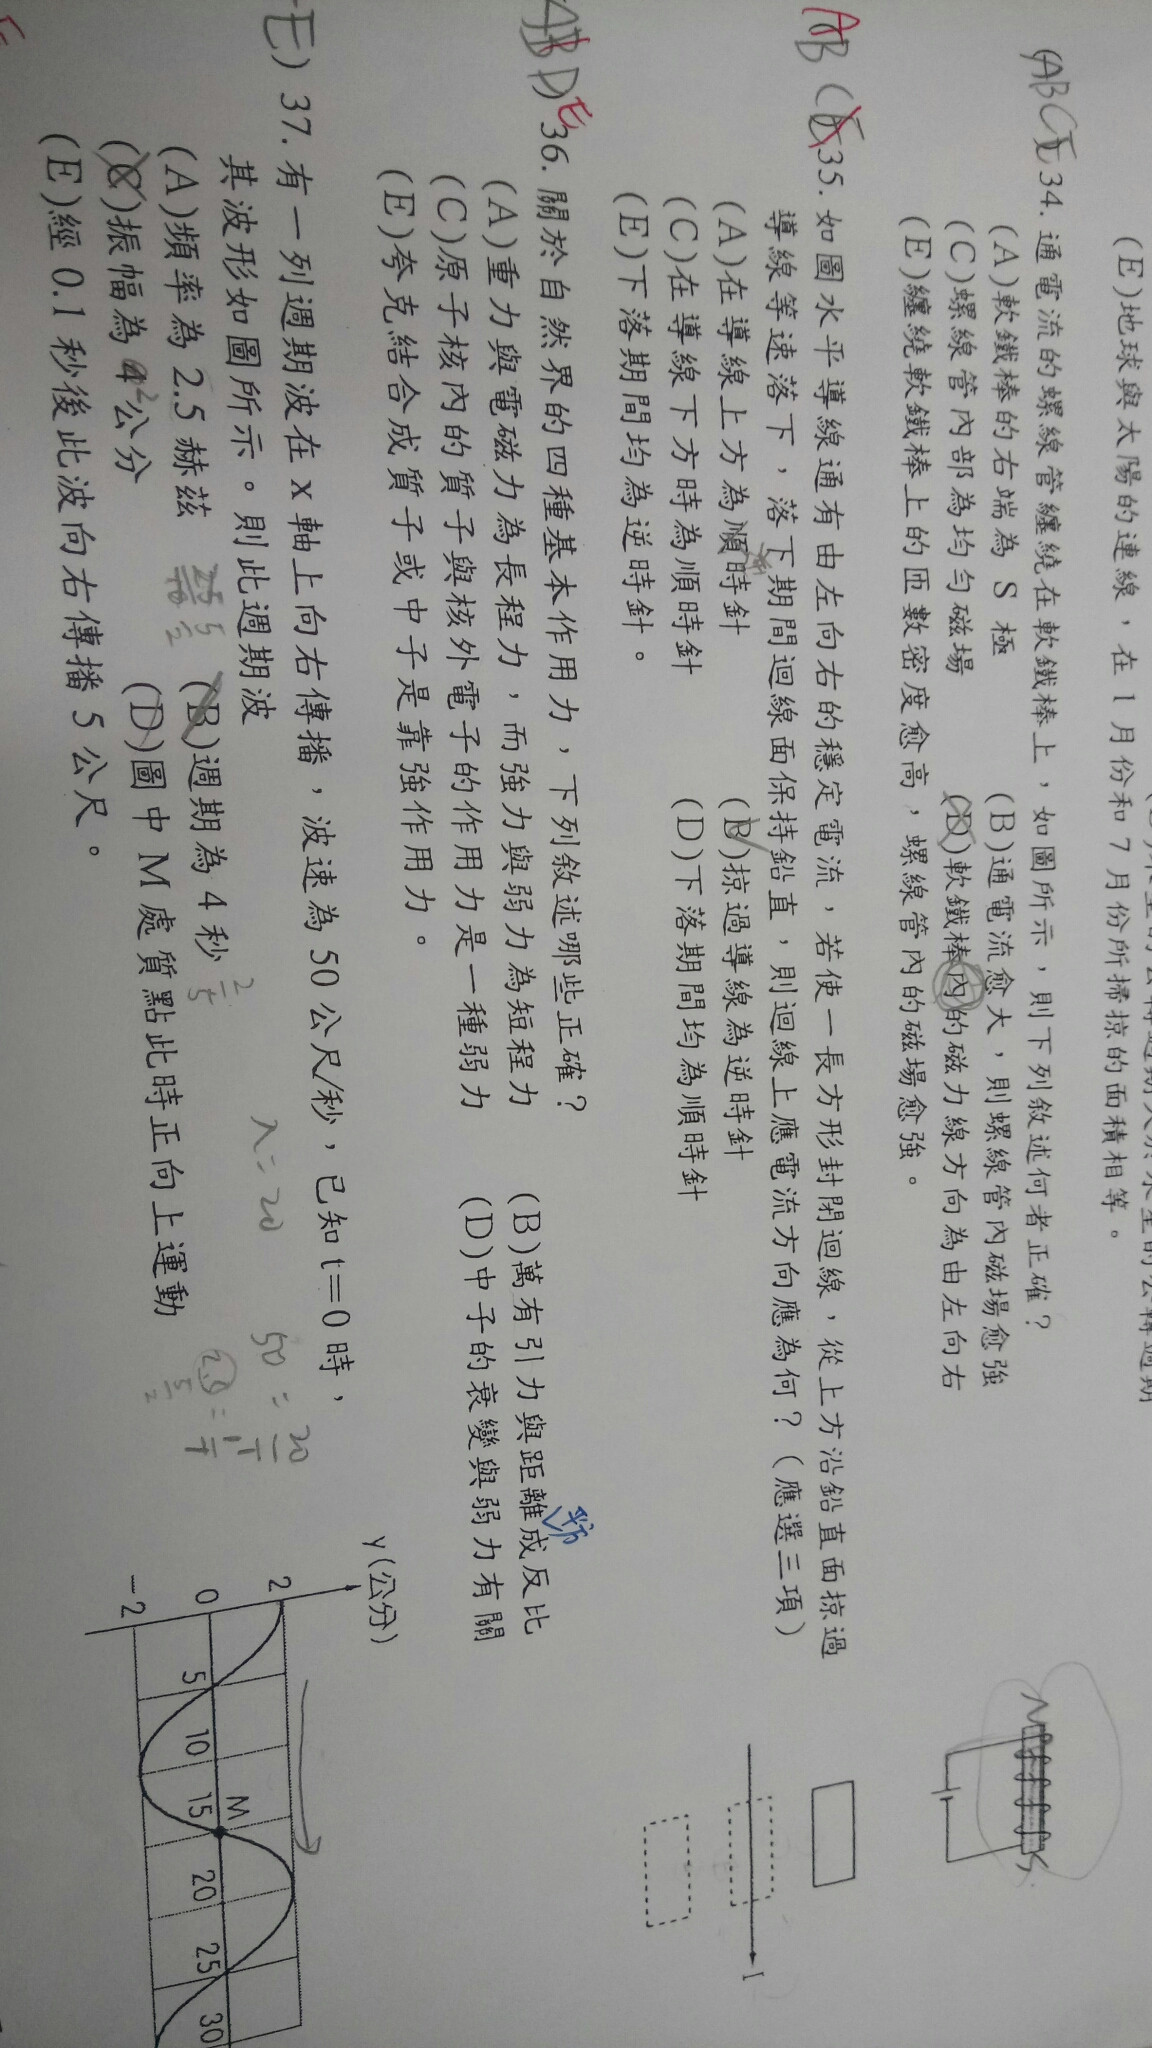 (E)地球與太陽的連線,在1月份和7月份所掃掠的面積相等。
(ABCE 34. 通電流的螺線管纏繞在軟鐵棒上,如圖所示,則下列敘述何者正確?
(A)軟鐵棒的右端為 S 極 (B)通電流愈大,則螺線管內磁場愈強
(C)螺線管內部為均勻磁場 (D)軟鐵棒內的磁力線方向為由左向右
(E)纏繞軟鐵棒上的匝數密度愈高,螺線管內的磁場愈強。
N S
ABC 35. 如圖水平導線通有由左向右的穩定電流,若使一長方形封閉迴線,從上方沿鉛直面掠過
導線等速落下,落下期間迴線面保持鉛直,則迴線上應電流方向應為何?(應選三項)
(A)在導線上方為順時針 (B)掠過導線為逆時針
(C)在導線下方時為順時針 (D)下落期間均為順時針
(E)下落期間均為逆時針。
I
ABD)E 36. 關於自然界的四種基本作用力,下列敘述哪些正確?
(A)重力與電磁力為長程力,而強力與弱力為短程力 (B)萬有引力與距離成反比
平方
(C)原子核內的質子與核外電子的作用力是一種弱力 (D)中子的衰變與弱力有關
(E)夸克結合成質子或中子是靠強作用力。
E) 37. 有一列週期波在 x 軸上向右傳播,波速為 50 公尺/秒,已知 t=0 時,
其波形如圖所示。則此週期波
λ=20
50 = 20/T
2.5 = 1/T
5/2
(A)頻率為 2.5 赫茲 (B)週期為 4 秒
2/5
(C)振幅為 4 公分 (D)圖中 M 處質點此時正向上運動
2
(E)經 0.1 秒後此波向右傳播 5 公尺。
y(公分)
2
0
-2
5 10 15 20 25 30
M